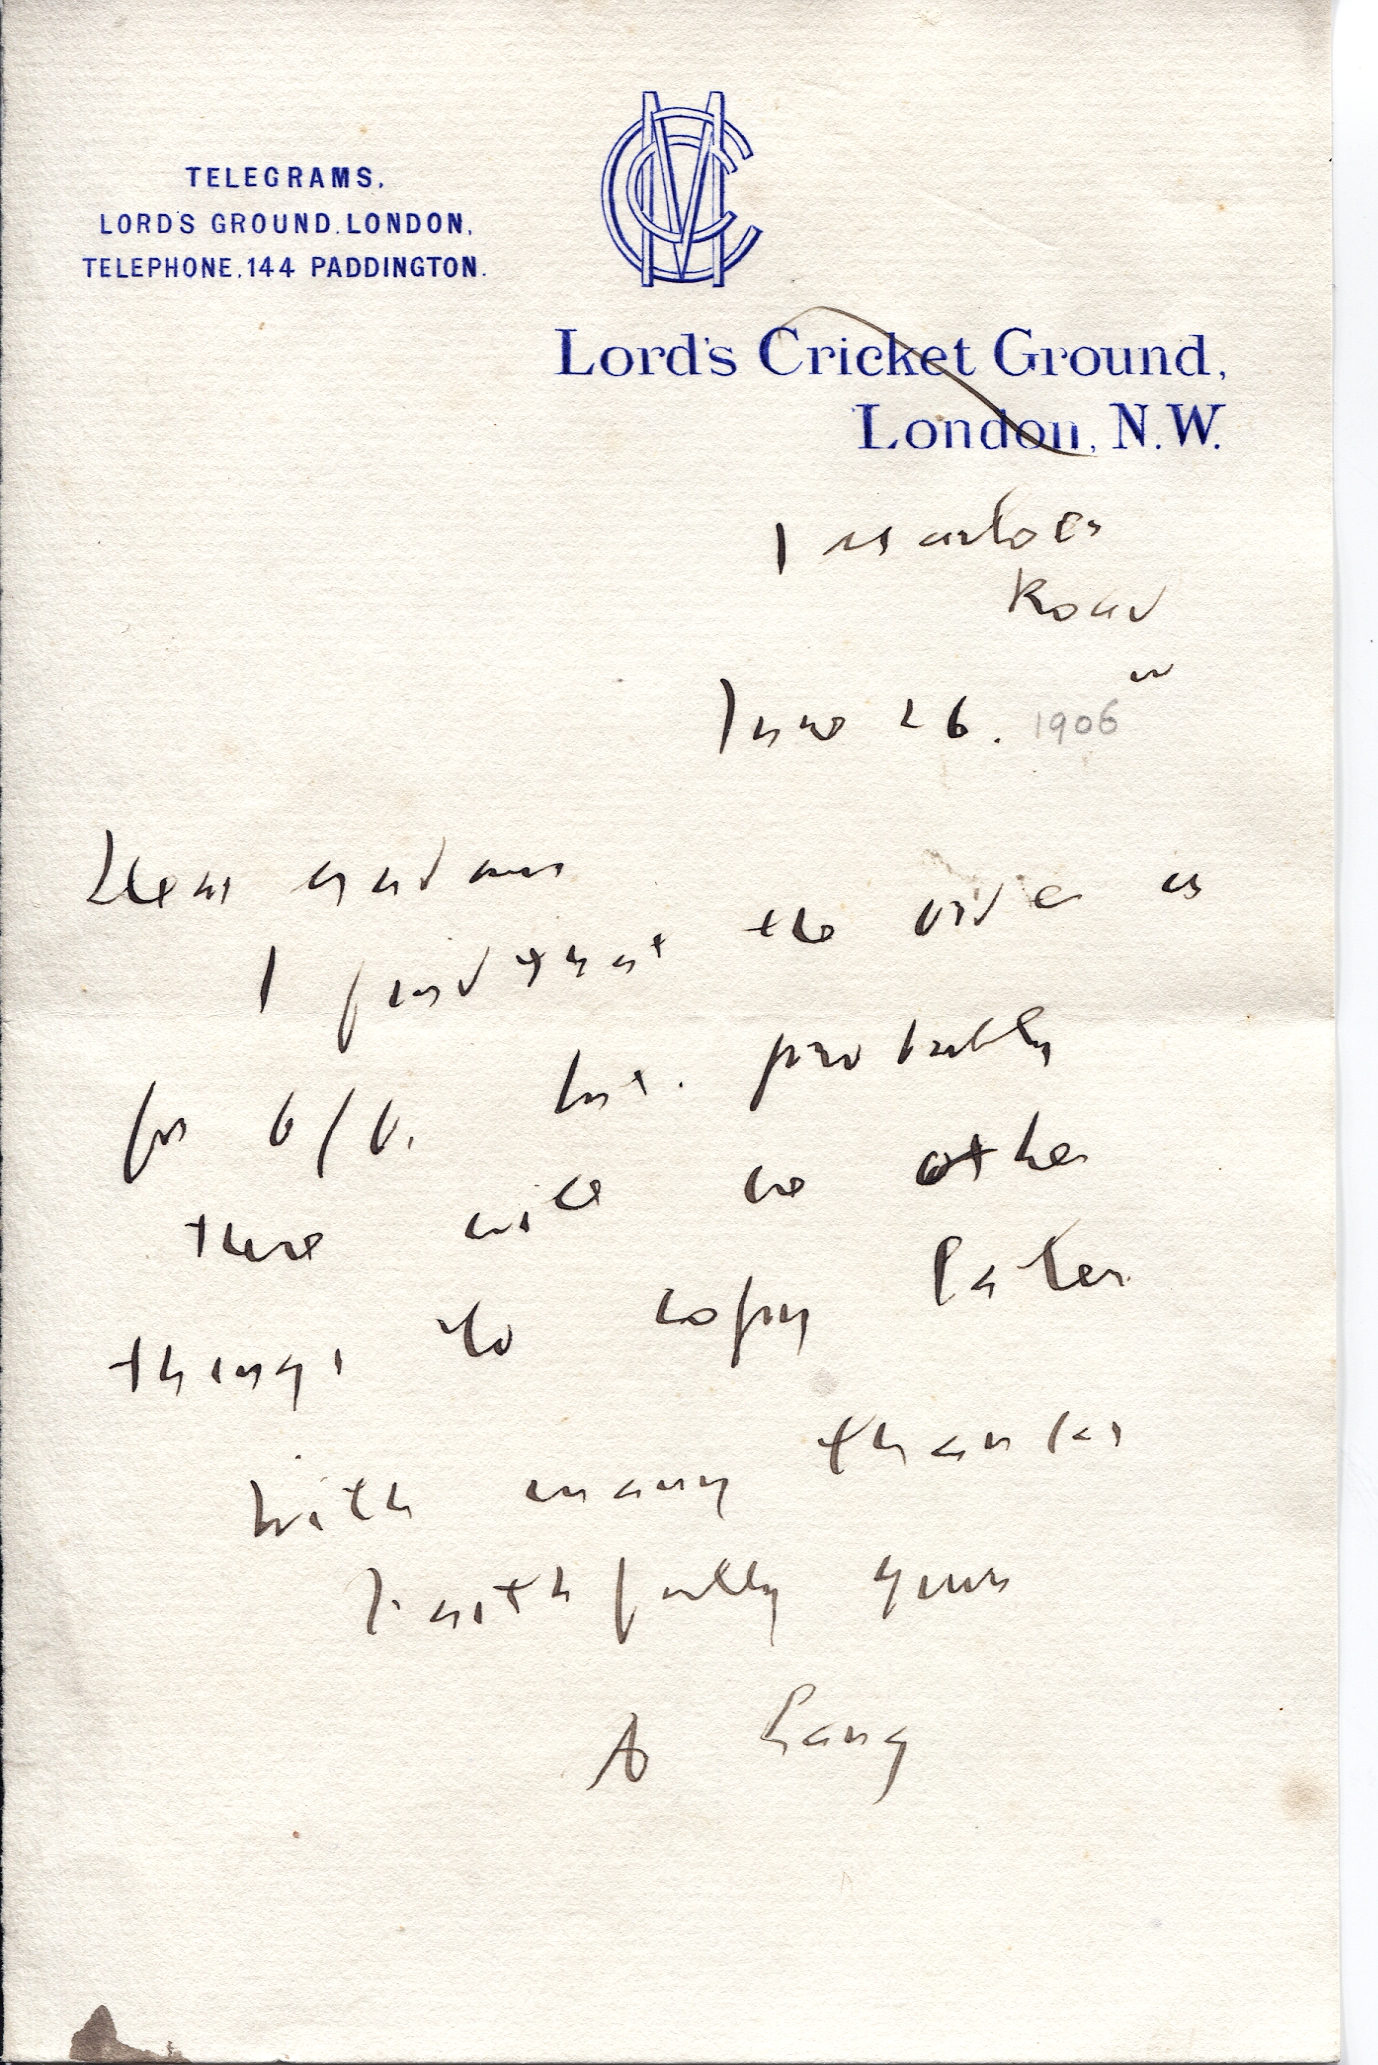 TELEGRAMS.
LORD'S GROUND. LONDON.
TELEPHONE. 144 PADDINGTON.
MCC
Lord's Cricket Ground,
London, N.W.
1 Marloes
Road
W
June 26. 1906
Dear Madam
I find that the order is
for 6/6. but. probably
there will be other
things to copy later
With many thanks
Faithfully yours
A Lang